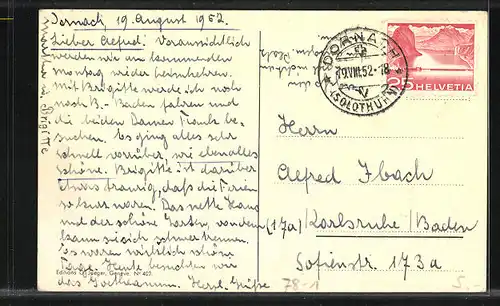 Dornach 19. August 1952.
Lieber Alfred! Voraussichtlich
werden wir am kommenden
Montag wieder heimkehren.
Mit Brigitte werde ich noch
nach B.-Baden fahren und
die beiden Damen Frank be-
suchen. Es ging alles sehr
schnell vorüber, wie eben alles
Schöne. Brigitte ist darüber
etwas traurig, daß die Ferien
so kurz waren. Das nette Haus
und der schöne Garten, von denen
kann sie sich schwer trennen.
Es waren wirklich schöne
Tage. Heute besuchten wir
das Goetheanum. Herzl. Grüße
Brigitte
DORNACH
19.VIII.52-18
(SOLOTHURN)
25
HELVETIA
Herrn
Alfred Ibach
(17a) Karlsruhe/Baden
Sofienstr. 173a
Editions O. Jaeger, Genève. No 407.
78-1
5.-